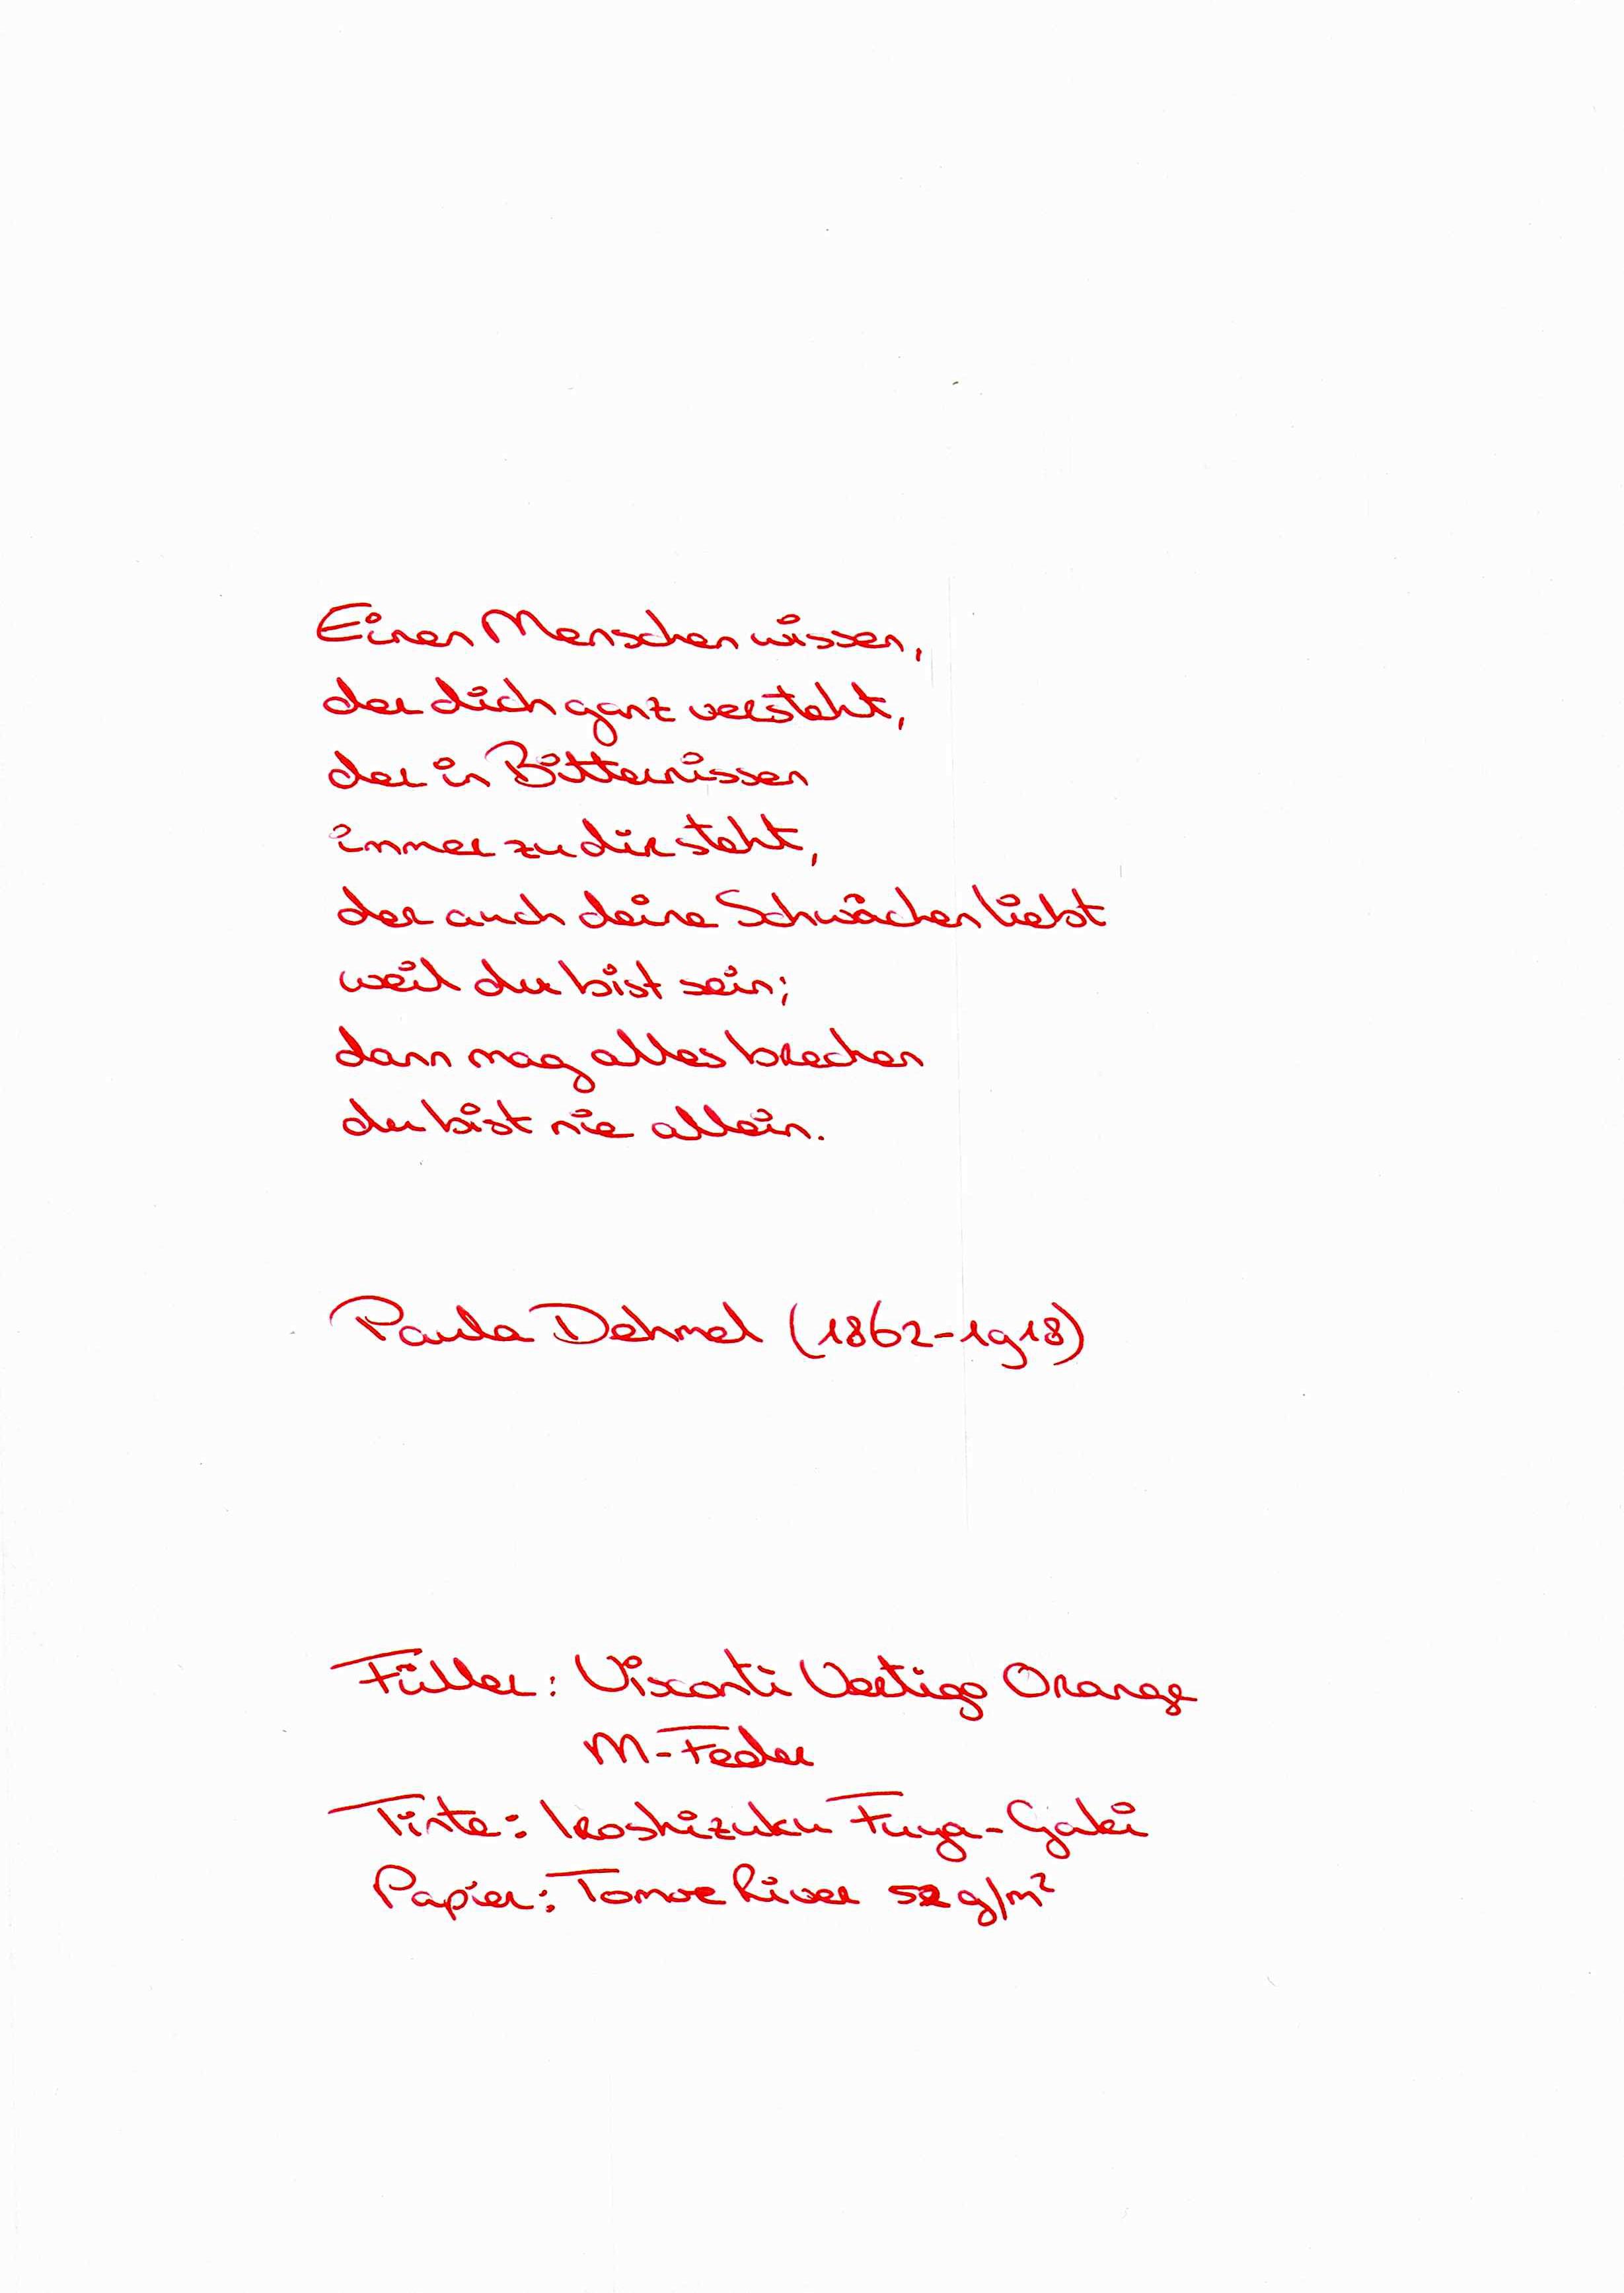 Einen Menschen wissen,
der dich ganz versteht,
der in Bitternissen
immer zu dir steht,
der auch deine Schwächen liebt
weil du bist sein;
dann mag alles brechen
du bist nie allein.
Paula Dehmel (1862-1918)
Füller: Visconti Vertigo Orange
M-Feder
Tinte: Iroshizuku Fuyu-Gaki
Papier: Tomoe River 52 g/m²